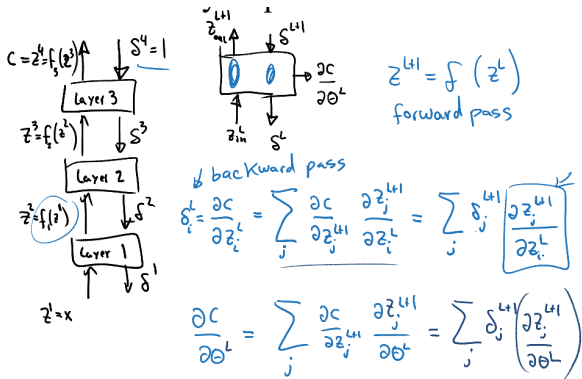 C = z⁴ = f₃(z³)
δ⁴ = 1
Layer 3
z³ = f₂(z²)
δ³
Layer 2
z² = f₁(z¹)
δ²
Layer 1
δ¹
z¹ = x
z_out^{L+1}
δ^{L+1}
∂C/∂θ^L
z_in^L
δ^L
z^{L+1} = f(z^L)
forward pass
backward pass
δ_i^L = ∂C/∂z_i^L = ∑_j ∂C/∂z_j^{L+1} ∂z_j^{L+1}/∂z_i^L = ∑_j δ_j^{L+1} ∂z_j^{L+1}/∂z_i^L
∂C/∂θ^L = ∑_j ∂C/∂z_j^{L+1} ∂z_j^{L+1}/∂θ^L = ∑_j δ_j^{L+1} (∂z_j^{L+1}/∂θ^L)